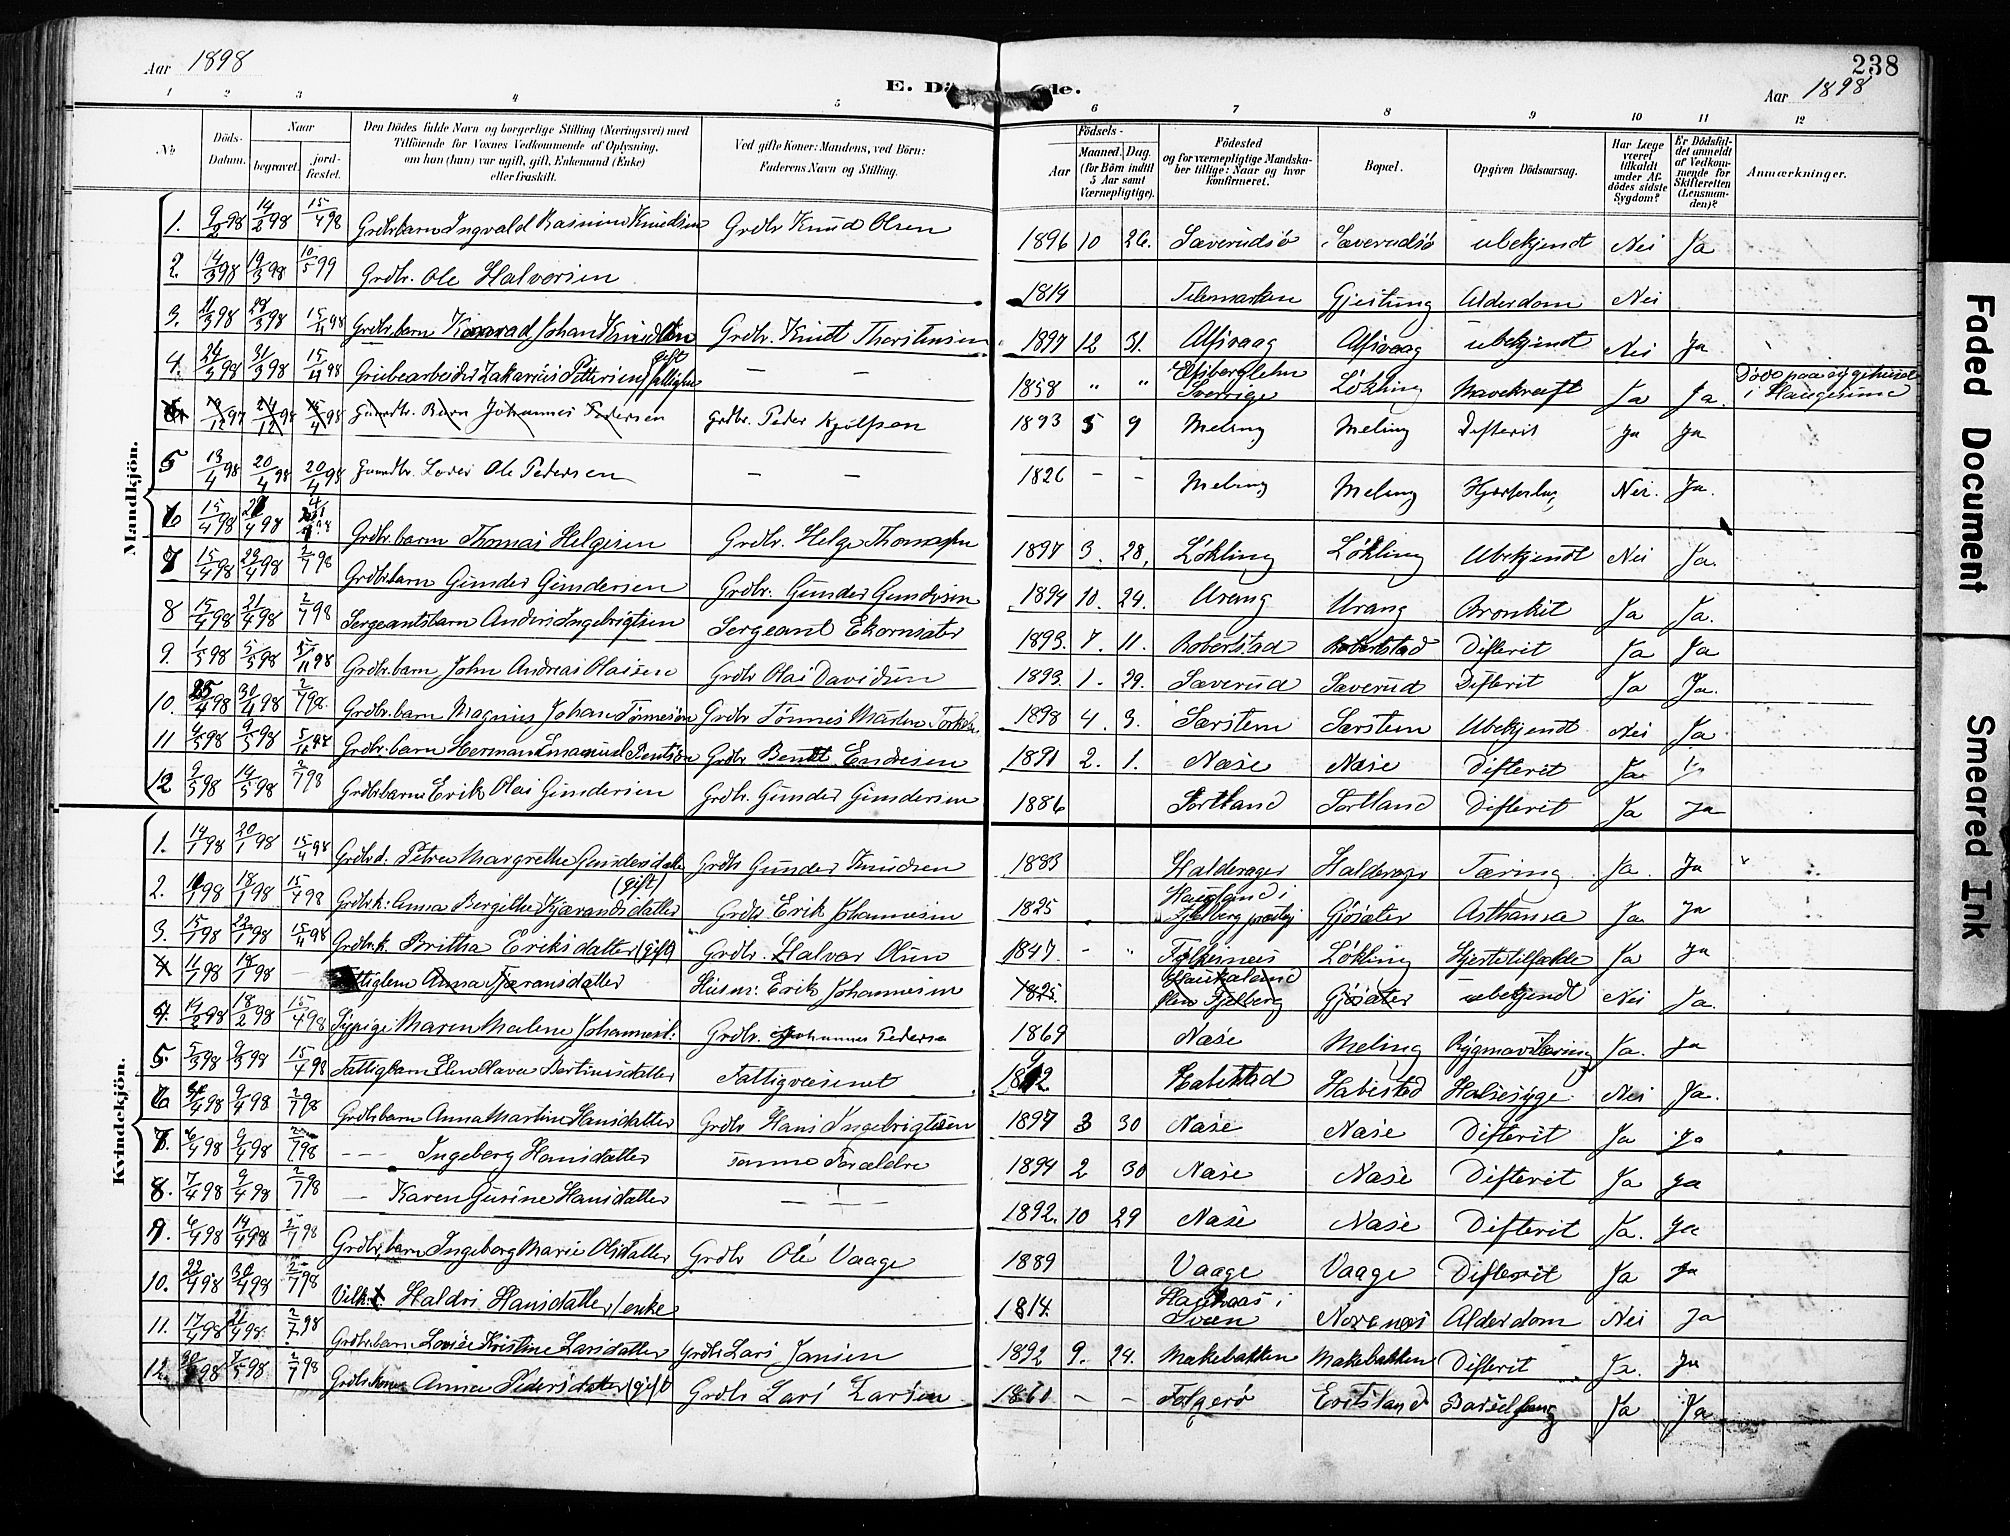 Aar 1898
E. Dö de.
238
Aar 1898
1 2 3 4 5 6 7 8 9 10 11 12
No
Döds-Datum.
Naar
begravet.
jord-fæstet.
Den Dödes fulde Navn og borgerlige Stilling (Næringsvei) med Tilföiende for Voxnes Vedkommende af Oplysning, om han (hun) var ugift, gift, Enkemand (Enke) eller fraskilt.
Ved gifte Koner: Mandens, ved Börn: Faderens Navn og Stilling.
Födsels-
Aar
Maaned. Dag. (for Börn indtil 5 Aar samt Værnepligtige).
Födested og for værnepligtige Mandskaber tillige: Naar og hvor konfirmeret.
Bopæl.
Opgiven Dödsaarsag.
Har Læge været tilkaldt under Afdödes sidste Sygdom?
Er Dödsfaldet anmeldt af Vedkommende for Skifteretten (Lensmanden)?
Anmærkninger.
Mandkjön.
1. 9/2 98 14/2 98 15/4 98 Grdbr.barn Ingvald Rasmus Knudsen Grdbr Knud Olsen 1896 10 26. Sæverudsø Sæverudsø ubekjendt Nei Ja
2. 14/3 98 19/3 98 10/5 99 Grdbr. Ole Halvorsen 1814 Telemarken Gjeitung Alderdom Nei
3. 21/3 98 28/3 98 15/4 98 Grdbr.barn Konrad Johan Knudsen Grdbr. Knut Thorstensen 1897 12 31. Alfsvaag Alfsvaag ubekjendt Nei Ja
4. 24/3 98 31/3 98 15/4 98 Grubearbeider Zakarias Pettersen gift — — 1858 " " Elfsborglehn Sverrige Løkling Mavekræft Ja Ja. Døde paa sygehuset i Haugesund
Grundbr. Barn Johannes Pedersen Grdbr. Peder Kjølfsen 1893 5 9 Meling Meling Difterit Ja Ja
5 13/4 98 20/4 98 20/4 98 Grundbr. Ole Pedersen — — 1826 – – Meling Meling Hjerteslag Nei. Ja.
6 15/4 98 4/98 Grdbr.barn Thomas Helgesen Grdbr. Helge Thomassen 1897 3. 28, Løkling Løkling Ubekjendt Nei Ja.
7 15/4 98 23/4 98 2/7 98 Grdbr.barn Gunder Gundersen Grdbr. Gunder Gundersen 1894 10. 24. Urang Urang Bronkit Ja Ja.
8 15/4 98 21/4 98 2/7 98 Sergeantsbarn Anders Ingebrigtsen Sergeant Ekornsæter 1893. 7. 11. Robertstad Robertstad Difterit Ja Ja
9. 1/5 98 5/5 98 5/11 98 Grdbr.barn John Andreas Olaisen Grdbr Olai Davidsen 1893. 1. 29. Sæverud Sæverud Difterit Ja Ja.
10. 25/4 98 30/4 98 2/7 98. Grdbr.barn Magnus Johan Tønnesen Grdbr Tønnes Martin 1898 4. 3. Sørstem Sørstem Ubekjendt. Nei Ja
11 4/5 98 9/5 98 Grdbr.barn Herman Emanuel Bentsen Grdbr Bendt Endresen 1891 2. 1. Næse Næse Difterit Ja
12 9/5 98 14/5 98 2/7 98 Grdbr.barn Erik Olai Gundersen Grdbr. Gunder Gundersen 1886 Sortland Sortland Difterit Ja Ja
Kvindekjön.
1. 14/1 98 20/1 98 15/4 98 Grdbrd. Petra Margrethe Gundersdatter Grdbr Gunder Knudsen 1883 Halderager Halderager Tæring Ja. Ja
2. 11/1 98 18/1 98. 15/4 98 Grdbr.k: Anna Bergithe Kjærandsdatter (gift) Grdbr. Erik Johannesen 1825 Haugland i Fjelberg præstgj Gjøsæter Asthama Ja Ja
3. 15/1 98 22/1 98 15/4 98 Grdbr.k. Britha Eriksdatter (gift) Grdbr. Halvor Olsen 1847. – " Løkling Hjertetilfælde Ja Ja
4 11/1 98 18/1 98 — Fattiglem Anna Kjæransdatter Husm: Erik Johannesen 1825. Ølen Fjelberg Gjøsæter ubekjendt Nei Ja.
4. 14/2 98 18/2 98 15/4 98 Sypige Maren Malene Johannesd: Grdbr. Johannes Pedersen 1869 Næse Meling Rygmarvstæring Ja. Ja
5. 5/3 98 9/3 98 15/4 98 Fattigbarn Elen Olava Bertinusdatter Fattigvæsenet Habestad Habestad Halsesyge Nei Ja.
6 9/4 98 2/7 98 Grdbr.barn Anna Martine Hansdatter Grdbr Hans Ingebrigtsen 1897 3 30 Næse Næse Difterit Ja Ja
7. 6/4 98 9/4 98 2/7 98 – – – Ingeborg Hansdatter samme Forældre 1894 2 30 Næse Næse Difterit Ja Ja
8. 7/4 98 9/4 98 2/7 98 — Karen Gurine Hansdatter — 1892. 10 29 Næse Næse Difterit Ja. Ja
9. 6/4 98 14/4 98 2/7 98 Grdbr,barn Ingeborg Marie Olsdatter Grdbr Ole Vaage 1889 Vaage Vaage Difterit Ja Ja
10. 22/4 98 30/4 98 2/7 98 Haldis Hansdatter enke 1814. Sveen Norenæs Alderdom Nei Ja
11. 17/4 98 21/4 98. 2/7 98 Grdbr.barn Lovise Kristine Larsdatter Grdbr Lars Jansen 1892 9. 24. Makebakken Makebakken Difterit Ja. Ja
12. 30/4 98 7/5 98 2/7 98 Grdbr.kone Anna Pedersdatter (gift) Grdbr Lars Larsen 1860 – – Folgerø Eritsland Barselseng Ja Ja
Faded Document
Smeared Ink